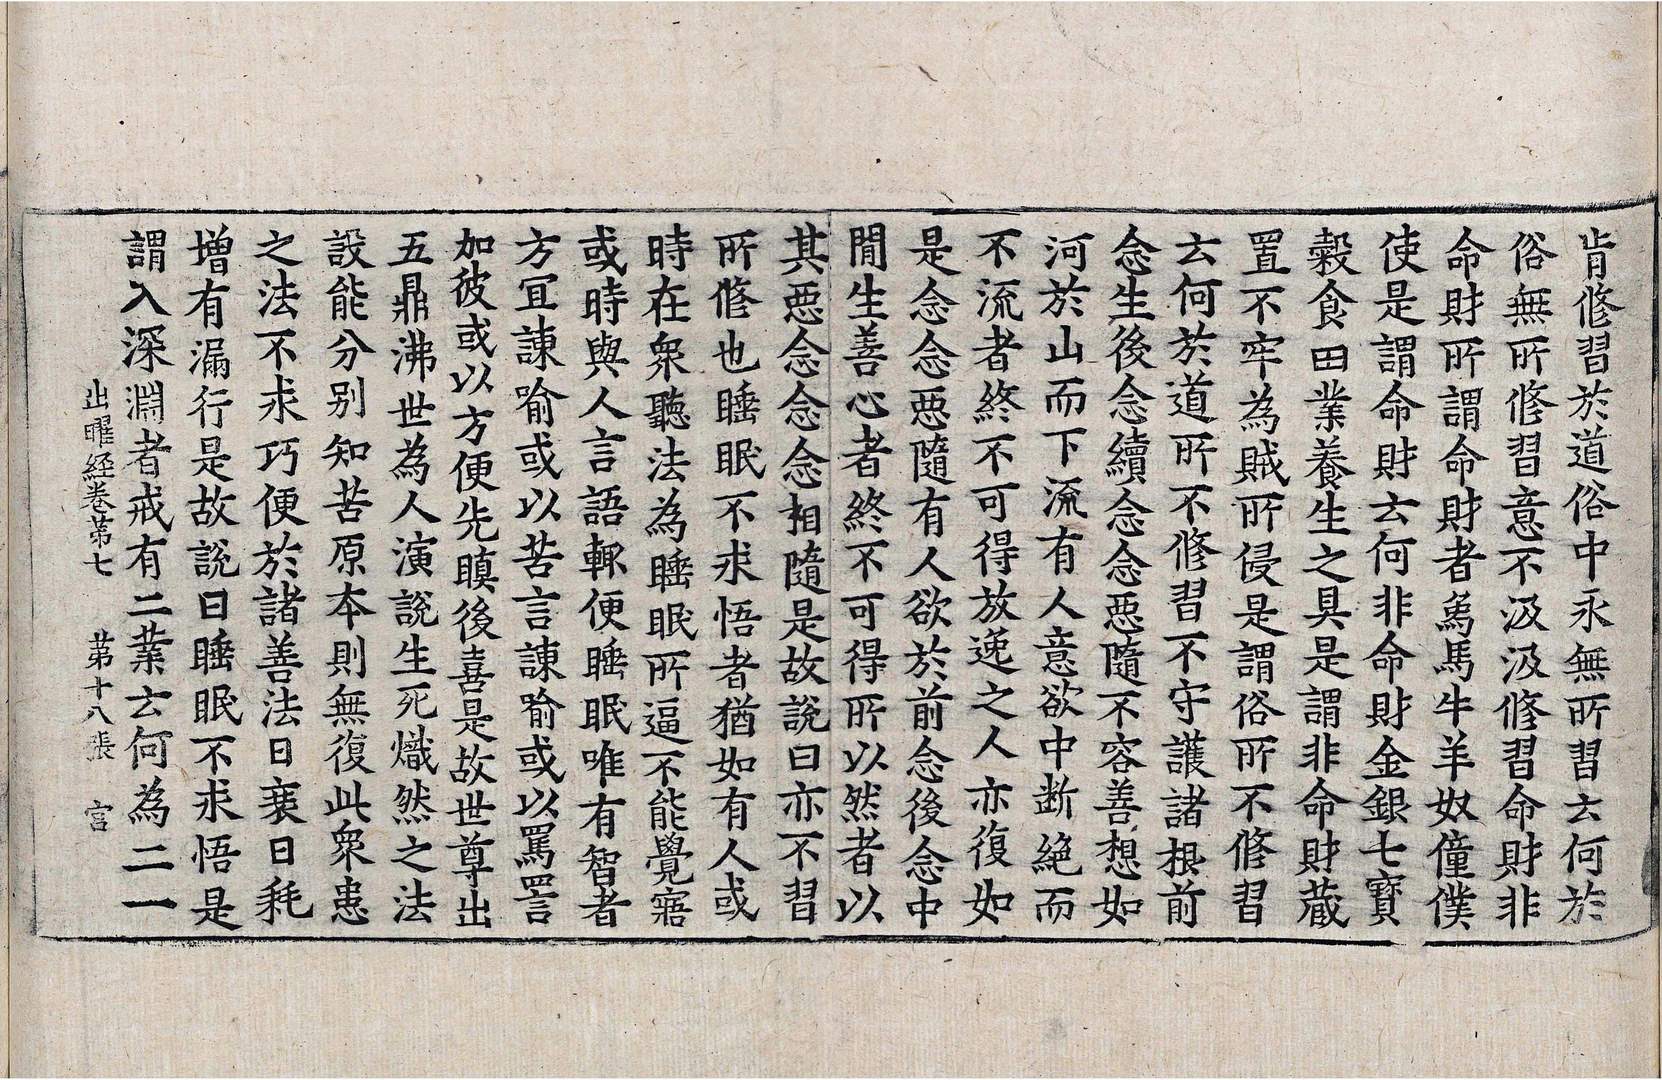 肯修習於道俗中永無所習云何於
俗無所修習意不汲汲修習命財非
命財所謂命財者象馬牛羊奴僮僕
使是謂命財云何非命財金銀七寶
糓食田業養生之具是謂非命財藏
置不牢為賊所侵是謂俗所不修習
云何於道所不修習不守護諸根前
念生後念續念念惡隨不容善想如
河於山而下流有人意欲中断絶而
不流者終不可得放逸之人亦復如
是念念惡隨有人欲於前念後念中
閒生善心者終不可得所以然者以
其惡念念念相隨是故說曰亦不習
所修也睡眠不求悟者猶如有人或
時在衆聽法為睡眠所逼不能覺寤
或時與人言語輙便睡眠唯有智者
方宜諫喻或以苦言諫喻或以罵詈
如彼或以方便先瞋後喜是故世尊出
五鼎沸世為人演說生死熾然之法
設能分别知苦原本則無復此衆患
之法不求巧便於諸善法日衰日耗
增有漏行是故說曰睡眠不求悟是
謂入深淵者戒有二業云何為二一
出曜經卷第七 第十八張 宫